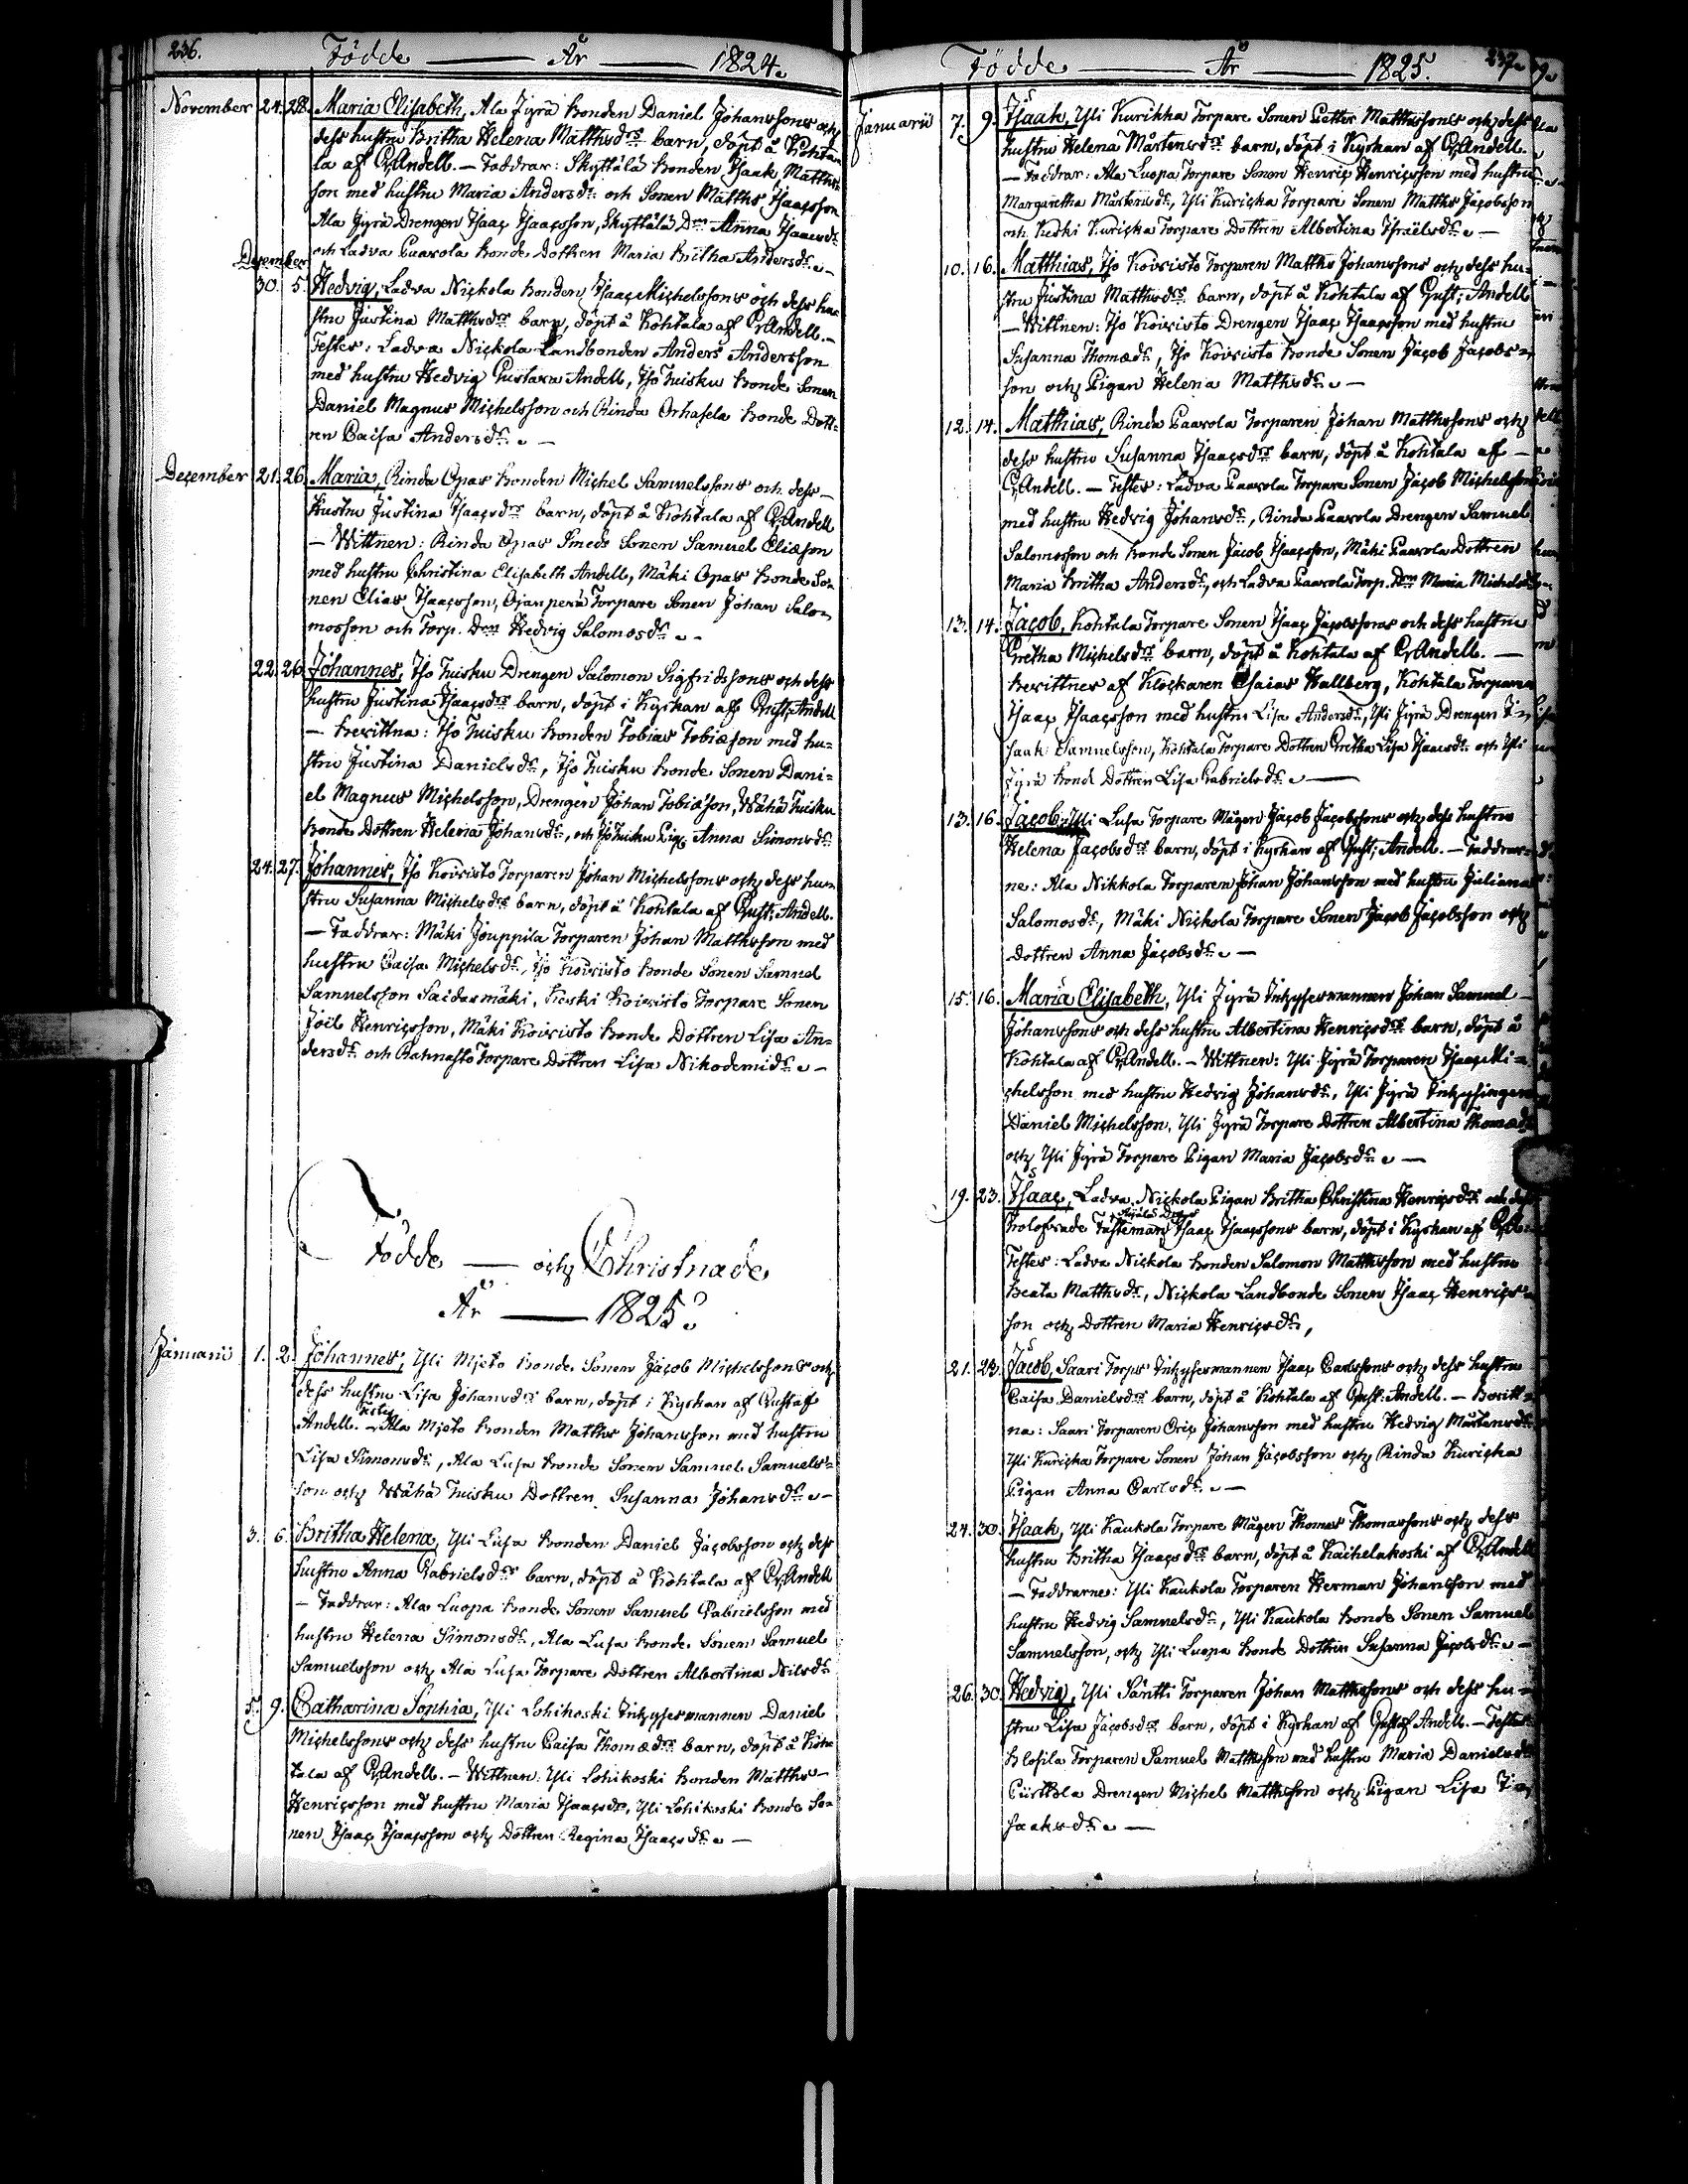 236. Födde — År — 1824.
November 24. 28. Maria Elisabeth, Ala Jyrä bonden Daniel Johanssons och
dess hustru Britha Helena Matthsdrs barn, döpt å Kohta-
la af G. Andell. — Faddrar: Skyttälä bonden Isaak Matths-
son med hustru Maria Andersdr. och Sonen Matths Isaacsson
Ala Jyrä Drengen Isaac Isaacsson, Skyttälä Dren Anna Isaacsdr.
och Ladva Paavola bonde Dottren Maria Britha Andersdr. —
December
30. 5. Hedvig, Ladva Nickola bonden Isaac Michelssons och dess hu-
stru Justina Matthsdrs barn, döpt å Kohtala af G. Andell. —
Testes: Ladva Nickola Landbonden Anders Andersson
med hustru Hedvig Gustava Andell, Iso Tuisku bonde Sonen
Daniel Magnus Michelsson och Rinda Orhasela bonde Dott-
ren Caisa Andersdr. —
December 21. 26. Maria, Rinda Opas bonden Michel Samuelssons och dess —
Hustru Justina Isaacsdrs barn, döpt å Kohtala af G. Andell
— Wittnen: Rinda Opas Smeds Sonen Samuel Eliæson
med hustru Christina Elisabeth Andell, Mäki Opas bonde So-
nen Elias Isaacsson, Ojanperä Torpare Sonen Johan Salo-
mosson och Torp. Dren Hedvig Salomosdr. —
22. 26. Johannes, Iso Tuisku Drengen Salomon Sigfridssons och dess
hustru Justina Isaacsdrs barn, döpt i Kyrkan af Gust: Andell
— Bevittna: Iso Tuisku bonden Tobias Tobiæson med hu-
stru Justina Danielsdr., Iso Tuisku bonde Sonen Dani-
el Magnus Michelsson, Drengen Johan Tobiæson, Wähä Tuisku
bonde Dottren Helena Johansdr., och Iso Tuisku Pig. Anna Simonsdr.
24. 27. Johannes, Iso Koivisto Torparen Johan Michelssons och dess hu-
stru Susanna Michelsdrs barn, döpt å Kohtala af Gust: Andell.
— Faddrar: Mäki Jouppila Torparen Johan Matthsson med
hustru Caisa Michelsdr., Iso Koivisto bonde Sonen Samuel
Samuelsson Saidasmäki, Keski Koivisto Torpare Sonen
Joël Henricsson, Mäki Koivisto bonde Dottren Lisa An-
dersdr. och Rahnasto Torpare Dottren Lisa Nikodemidr. —
Födde — och Christnade
År — 1825.
Januarii 1. 2. Johannes, Yli Mjeto bonde Sonen Jacob Michelssons och
dess hustru Lisa Johansdrs barn, döpt i Kyrkan af Gustaf
Andell. — Testes Ala Mjeto bonden Matths Johansson med hustru
Lisa Simonsdr., Ala Lusa bonde Sonen Samuel Samuels-
son och Wähä Tuisku Dottren Susanna Johansdr. —
3. 6. Britha Helena, Yli Lusa bonden Daniel Jacobsson och dess
hustru Anna Gabrielsdrs barn, döpt å Kohtala af G. Andell
— Faddrar: Ala Luopa bonde Sonen Samuel Gabrielsson med
hustru Helena Simonsdr., Ala Lusa bonde Sonen Samuel
Samuelsson och Ala Lusa Torpare Dottren Albertina Nilsdr.
5. 9. Catharina Sophia, Yli Lohikoski Inhysesmannen Daniel
Michelssons och dess hustru Caisa Thomædrs barn, döpt å Koh-
tala af G. Andell. — Wittnen: Yli Lohikoski bonden Matths —
Henricsson med hustru Maria Isaacsdr., Yli Lohikoski bonde So-
nen Isaac Isaacsson och Dottren Regina Isaacsdr. —
Födde — År — 1825. 237.
Januarii 7. 9. Isaak, Yli Kurikka Torpare Sonen Petter Matthssons och dess
hustru Helena Mårtensdrs barn, döpt i Kyrkan af G. Andell.
— Faddrar: Ala Luopa Torpare Sonen Henric Henricsson med hustru
Margaretha Mårtensdr., Yli Kuricka Torpare Sonen Matths Jacobsson
och Keski Kuricka Torpare Dottren Albertina Israëlsdr. —
10. 16. Matthias, Iso Koivisto Torparen Matths Johanssons och dess hu-
stru Justina Matthsdrs barn, döpt å Kohtala af Gust: Andell
— Wittnen: Iso Koivisto Drengen Isaac Isaacsson med hustru
Susanna Thomædr., Iso Koivisto bonde Sonen Jacob Jacobs-
son och Pigan Helena Matthsdr. —
12. 14. Matthias, Rinda Paavola Torparen Johan Matthssons och
dess hustru Susanna Isaacsdrs barn, döpt å Kohtala af —
G. Andell. — Testes: Ladva Paavola Torpare Sonen Jacob Michelsson
med hustru Hedvig Johansdr., Rinda Paavola Drengen Samuel
Salomosson och bonde Sonen Jacob Isaacsson, Mäki Paavola Dottren
Maria Britha Andersdr., och Ladva Paavola Torp. Dren Maria Michelsdr.
13. 14. Jacob, Kohtala Torpare Sonen Isaac Jacobssons och dess hustru
Gretha Michelsdrs barn, döpt å Kohtala af G. Andell. —
Bevittnes af Klockaren Esaias Hallberg, Kohtala Torparen
Isaac Isaacsson med hustru Lisa Andersdr., Yli Jyrä Drengen I-
saak Samuelsson, Kohtala Torpare Dottren Gretha Lisa Isaacsdr. och Yli
Jyrä bonde Dottren Lisa Gabrielsdr. —
13. 16. Jacob, Yli Lusa Torpare Mågen Jacob Jacobssons och dess hustru
Helena Jacobsdrs barn, döpt i Kyrkan af Gust: Andell. — Faddrar-
ne: Ala Nikkola Torparen Johan Johansson med hustru Juliana
Salomosdr., Mäki Nickola Torpare Sonen Jacob Jacobsson och
Dottren Anna Jacobsdr. —
15. 16. Maria Elisabeth, Yli Jyrä Inhysesmannen Johan Samuel
Johanssons och dess hustru Albertina Henricsdrs barn, döpt å
Kohtala af G. Andell. — Wittnen: Yli Jyrä Torparen Isaac Mi-
chelsson med hustru Hedvig Johansdr., Yli Jyrä Inhysingen
Daniel Michelsson, Yli Jyrä Torpare Dottren Albertina Thomædr.
och Yli Jyrä Torpare Pigan Maria Jacobsdr. —
19. 23. Isaac, Ladva Nickola Pigan Britha Christina Henricsdrs och dess
Trolofvade Fästeman Isaac Isaacssons barn, döpt i Kyrkan af G.
Testes: Ladva Nickola bonden Salomon Matthsson med hustru
Beata Matthsdr., Nickola Landbonde Sonen Isaac Henrics-
son och Dottren Maria Henricsdr.,
21. 23. Jacob, Saari Torps Inhysesmannen Isaac Carlssons och dess hustru
Caisa Danielsdrs barn, döpt å Kohtala af Gust: Andell. — Bevitt-
na: Saari Torparen Eric Johansson med hustru Hedvig Mårtensdr.
Yli Kuricka Torpare Sonen Johan Jacobsson och Rinda Kuricka
Pigan Anna Carlsdr. —
24. 30. Isaak, Yli Kaukola Torpare Mågen Thomas Thomassons och dess
hustru Britha Isaacsdrs barn, döpt å Kaihelakoski af G. Andell
— Faddrarne: Yli Kaukola Torparen Herman Johansson med
hustru Hedvig Samuelsdr., Yli Kaukola bonde Sonen Samuel
Samuelsson, och Yli Luopa bonde Dottren Susanna Jacobsdr. —
26. 30. Hedvig, Yli Säntti Torparen Johan Matthssons och dess hu-
stru Lisa Jacobsdrs barn, döpt i Kyrkan af Gustaf Andell. — Testes
Klosila Torparen Samuel Matthsson med hustru Maria Danielsdr.
Pirttola Drengen Michel Matthsson och Pigan Lisa I-
saaksdr. —